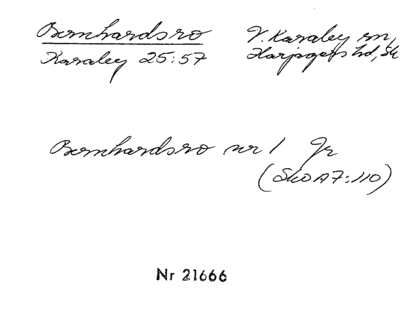 Bernhardsro V. Karaby sn,
Karaby 25:57 Harjagers hd, Sk
Bernhardsro nr 1 Gr
(SkO A7:110)
Nr 21666